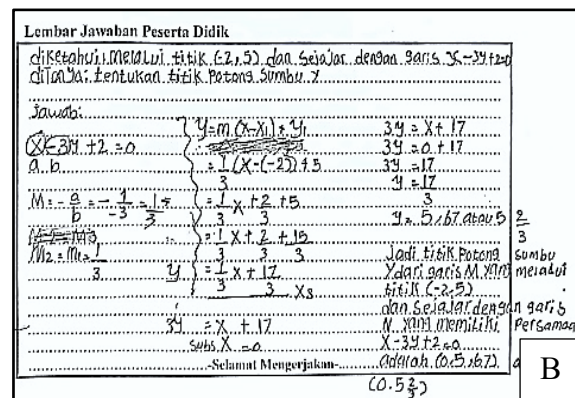 Lembar Jawaban Peserta Didik
diketahui: melalui titik (-2,5) dan sejajar dengan garis x-3y+2=0
diTanya: tentukan titik Potong Sumbu y
Jawab:
x-3y+2=0
a b
M=-a/b=-1/-3=1/3
M2=M1=1/3
y=m(x-x1)+y1
=1/3(x-(-2))+5
=1/3x+2/3+5
=1/3x+2/3+15/3
y=1/3x+17/3 x3
3y=x+17
subs x=0
3y=x+17
3y=0+17
3y=17
y=17/3
y=5,67 atau 5 2/3
Jadi titik Potong sumbu
Y dari garis M yang melalui
titik (-2,5)
dan sejajar dengan garis
N yang memiliki Persamaa
x-3y+2=0
adalah (0,5,67) a
(0.5 2/3)
-Selamat Mengerjakan-
B